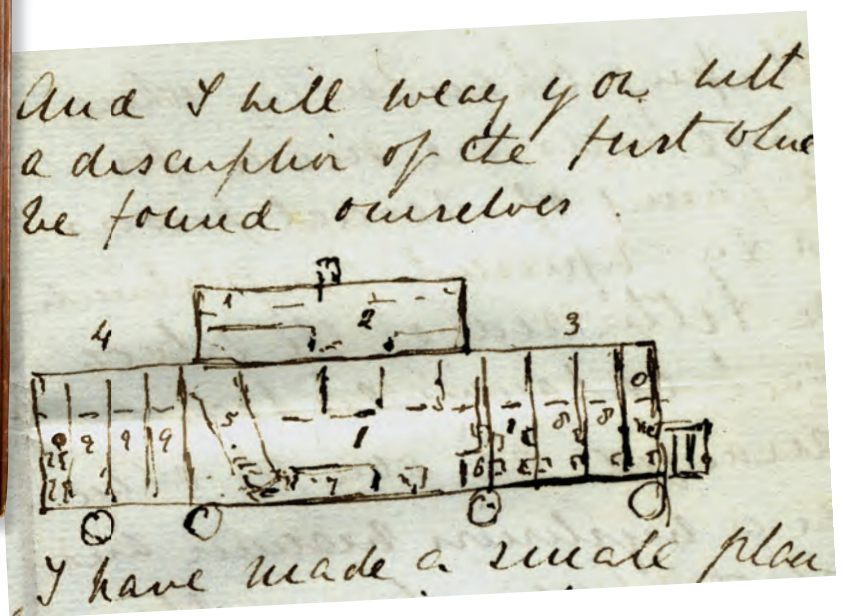 And I will weary you with
a discription of the
we found ourselves.
1 2
4 3
9 9 9 5 1 8 8
7 6
I have made a small plan